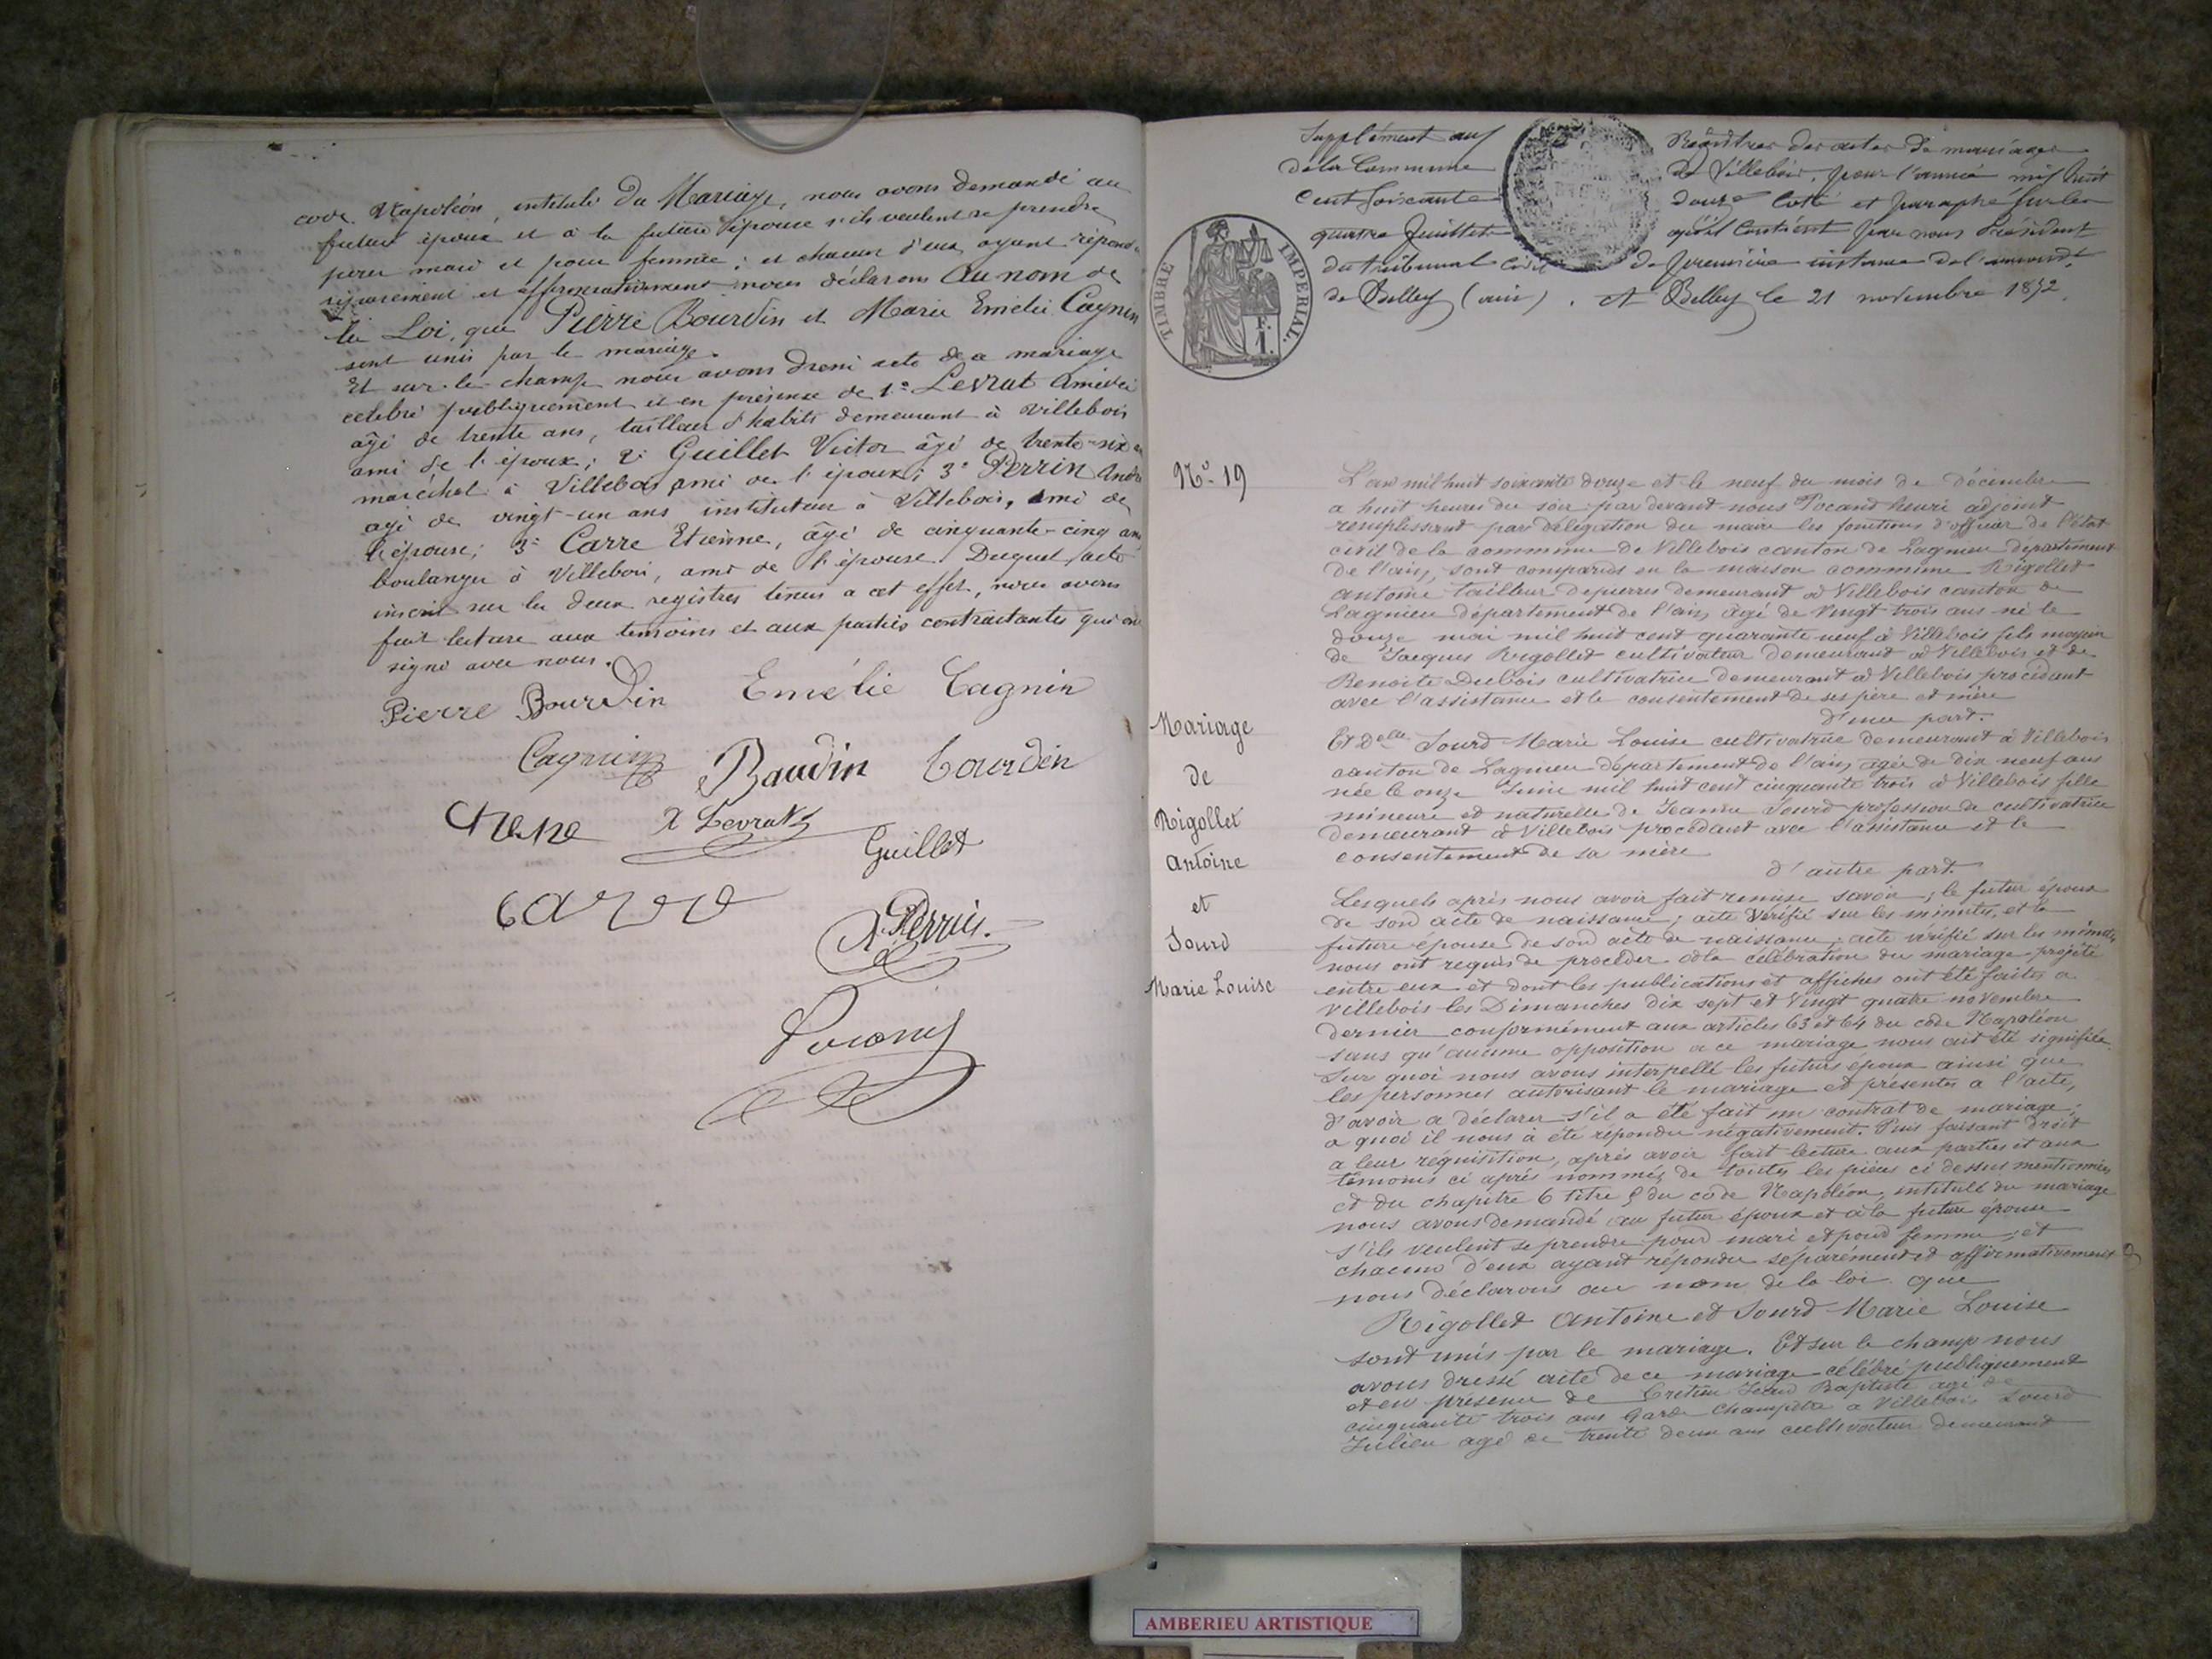 code Napoléon, intitulé Du Mariage, nous avons demandé au
futur époux et à la future épouse s'ils veulent se prendre
pour mari et pour femme; et chacun d'eux ayant répondu
séparément et affirmativement nous déclarons Au nom de
la Loi, que Pierre Bourdin et Marie Emélie Cagnin
sont unis par le mariage.
Et sur-le-champ nous avons dressé acte de ce mariage
célébré publiquement et en présence de 1° Levrat Amédée
âgé de trente ans, tailleur d'habits demeurant à Villebois
ami de l'époux; 2° Guillet Victor âgé de trente-six
maréchal à Villebois ami de l'époux; 3° Perrin André
âgé de vingt-un ans instituteur à Villebois, ami de
l'épouse; 3° Carre Etienne, âgé de cinquante-cinq ans
boulanger à Villebois, ami de l'épouse. Duquel acte
inscrit sur les deux registres tenus a cet effet, nous avons
fait lecture aux temoins et aux parties contractantes qui ont
signé avec nous.
Pierre Bourdin Emélie Cagnin
Cagnin Baudin Bourdin
Levrat
Guillet
Carre
A. Perrin
Pocand
Supplément aux Registres des actes de mariages
de la Commune de Villebois, pour l'année mil huit
cent soixante douze Coté et paraphé sur les
quatre feuillets qu'il contient par nous Président
du tribunal civil de première instance de l'arrond.t
de Belley (ain). A Belley le 21 novembre 1872.
TIMBRE IMPERIAL.
F.
1.
N° 19
L'an mil huit soixante douze et le neuf du mois de Décembre
a huit heures du soir par devant nous Pocand henri adjoint
remplissant par délégation du maire les fonctions d'officier de l'état
civil de la commune de Villebois canton de Lagnieu département
De l'ain, sont comparus en la maison commune Rigollet
antoine tailleur de pierres demeurant à Villebois canton de
Lagnieu département de l'ain, âgé de vingt trois ans né le
douze mai mil huit cent quarante neuf à Villebois fils majeur
de Jacques Rigollet cultivateur demeurant à Villebois et de
Benoite Dubois cultivatrice demeurant à Villebois procédant
avec l'assistance et le consentement de ses père et mère
d'une part.
Et Delle Sourd Marie Louise cultivatrice demeurant à Villebois
canton de Lagnieu département de l'ain, agée de dix neuf ans
née le onze Juin mil huit cent cinquante trois à Villebois fille
mineure et naturelle de Jeanne Sourd profession de cultivatrice
demeurant à Villebois procédant avec l'assistance et le
consentement de sa mère
d'autre part.
Mariage
de
Rigollet
Antoine
et
Sourd
Marie Louise
Lesquels après nous avoir fait remise savoir; le futur époux
de son acte de naissance; acte vérifié sur les minutes, et la
future épouse de son acte de naissance; acte vérifié sur les minutes
nous ont requis de procéder à la célébration du mariage projeté
entre eux et dont les publications et affiches ont été faites a
Villebois les Dimanches dix sept et vingt quatre novembre
dernier conformément aux articles 63 et 64 du code Napoléon
sans qu'aucune opposition a ce mariage nous ait été signifiée
Sur quoi nous avons interpellé les futurs époux ainsi que
les personnes autorisant le mariage et présentes a l'acte,
d'avoir a déclarer s'il a été fait un contrat de mariage;
a quoi il nous à été répondu négativement. Puis faisant droit
a leur réquisition, après avoir fait lecture aux parties et aux
témoins ci après nommés de toutes les pièces ci dessus mentionnées
et du chapitre 6 titre 5 du code Napoléon, intitulé du mariage
nous avons demandé au futur époux et à la future épouse
s'ils veulent se prendre pour mari et pour femme; et
chacun d'eux ayant répondu séparément et affirmativement
nous déclarons au nom de la loi que
Rigollet Antoine et Sourd Marie Louise
sont unis par le mariage. Et sur le champ nous
avons dressé acte de ce mariage célébré publiquement
et en présence de Cretin Jean Baptiste agé de
cinquante trois ans Garde Champêtre a Villebois Sourd
Julien agé de trente deux ans cultivateur demeurant
AMBERIEU ARTISTIQUE